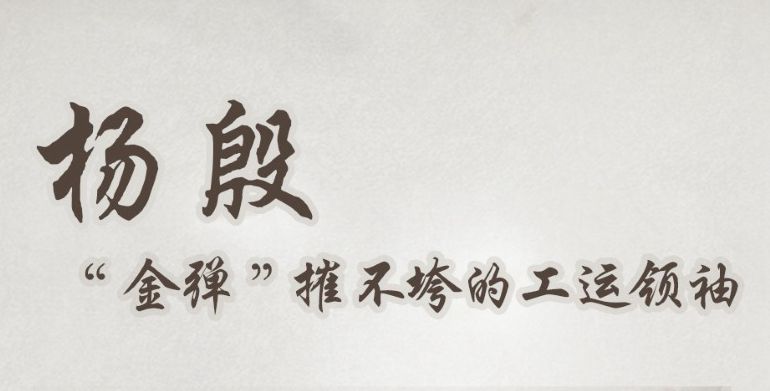 杨殷
“金弹”摧不垮的工运领袖